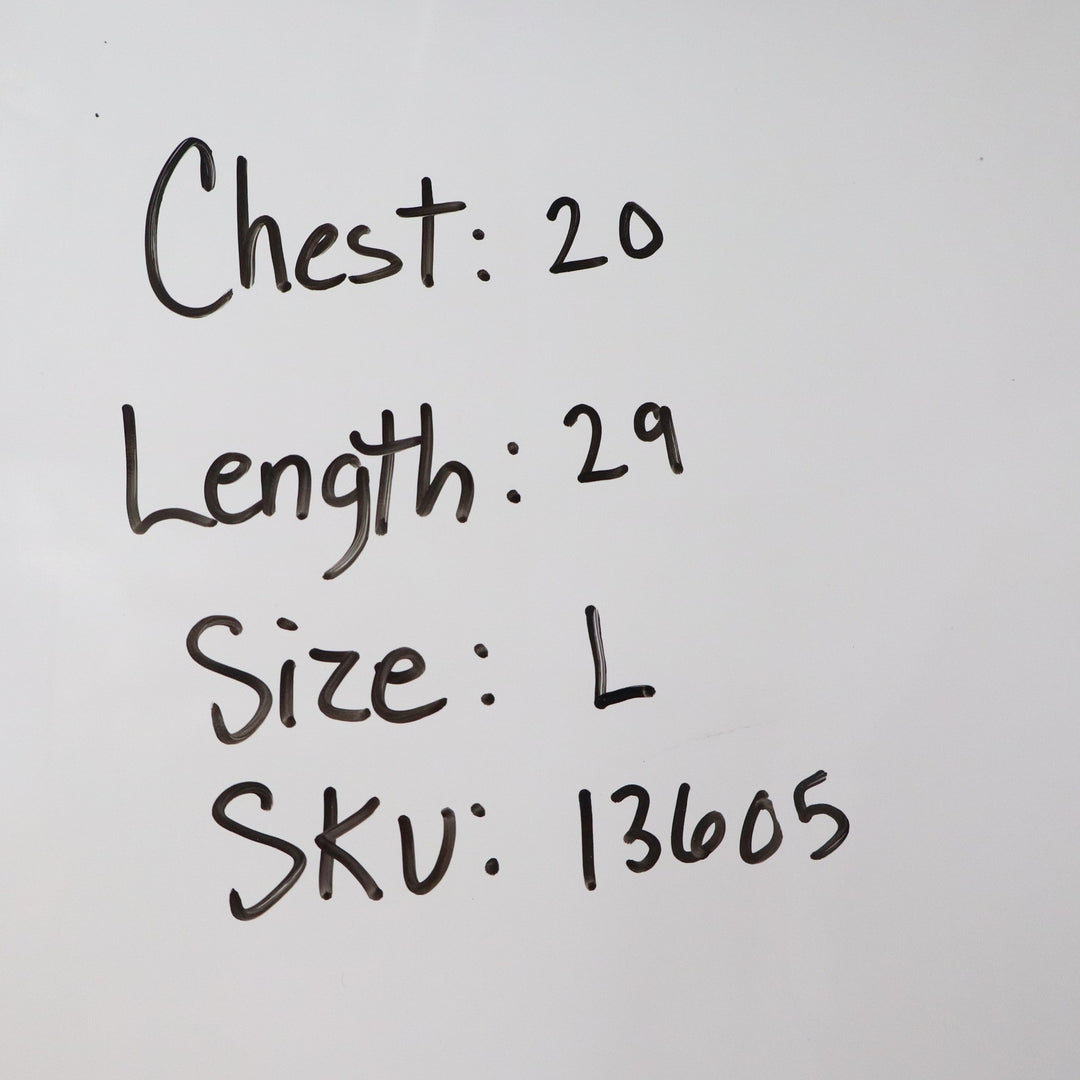 Chest: 20
Length: 29
Size: L
SKU: 13605